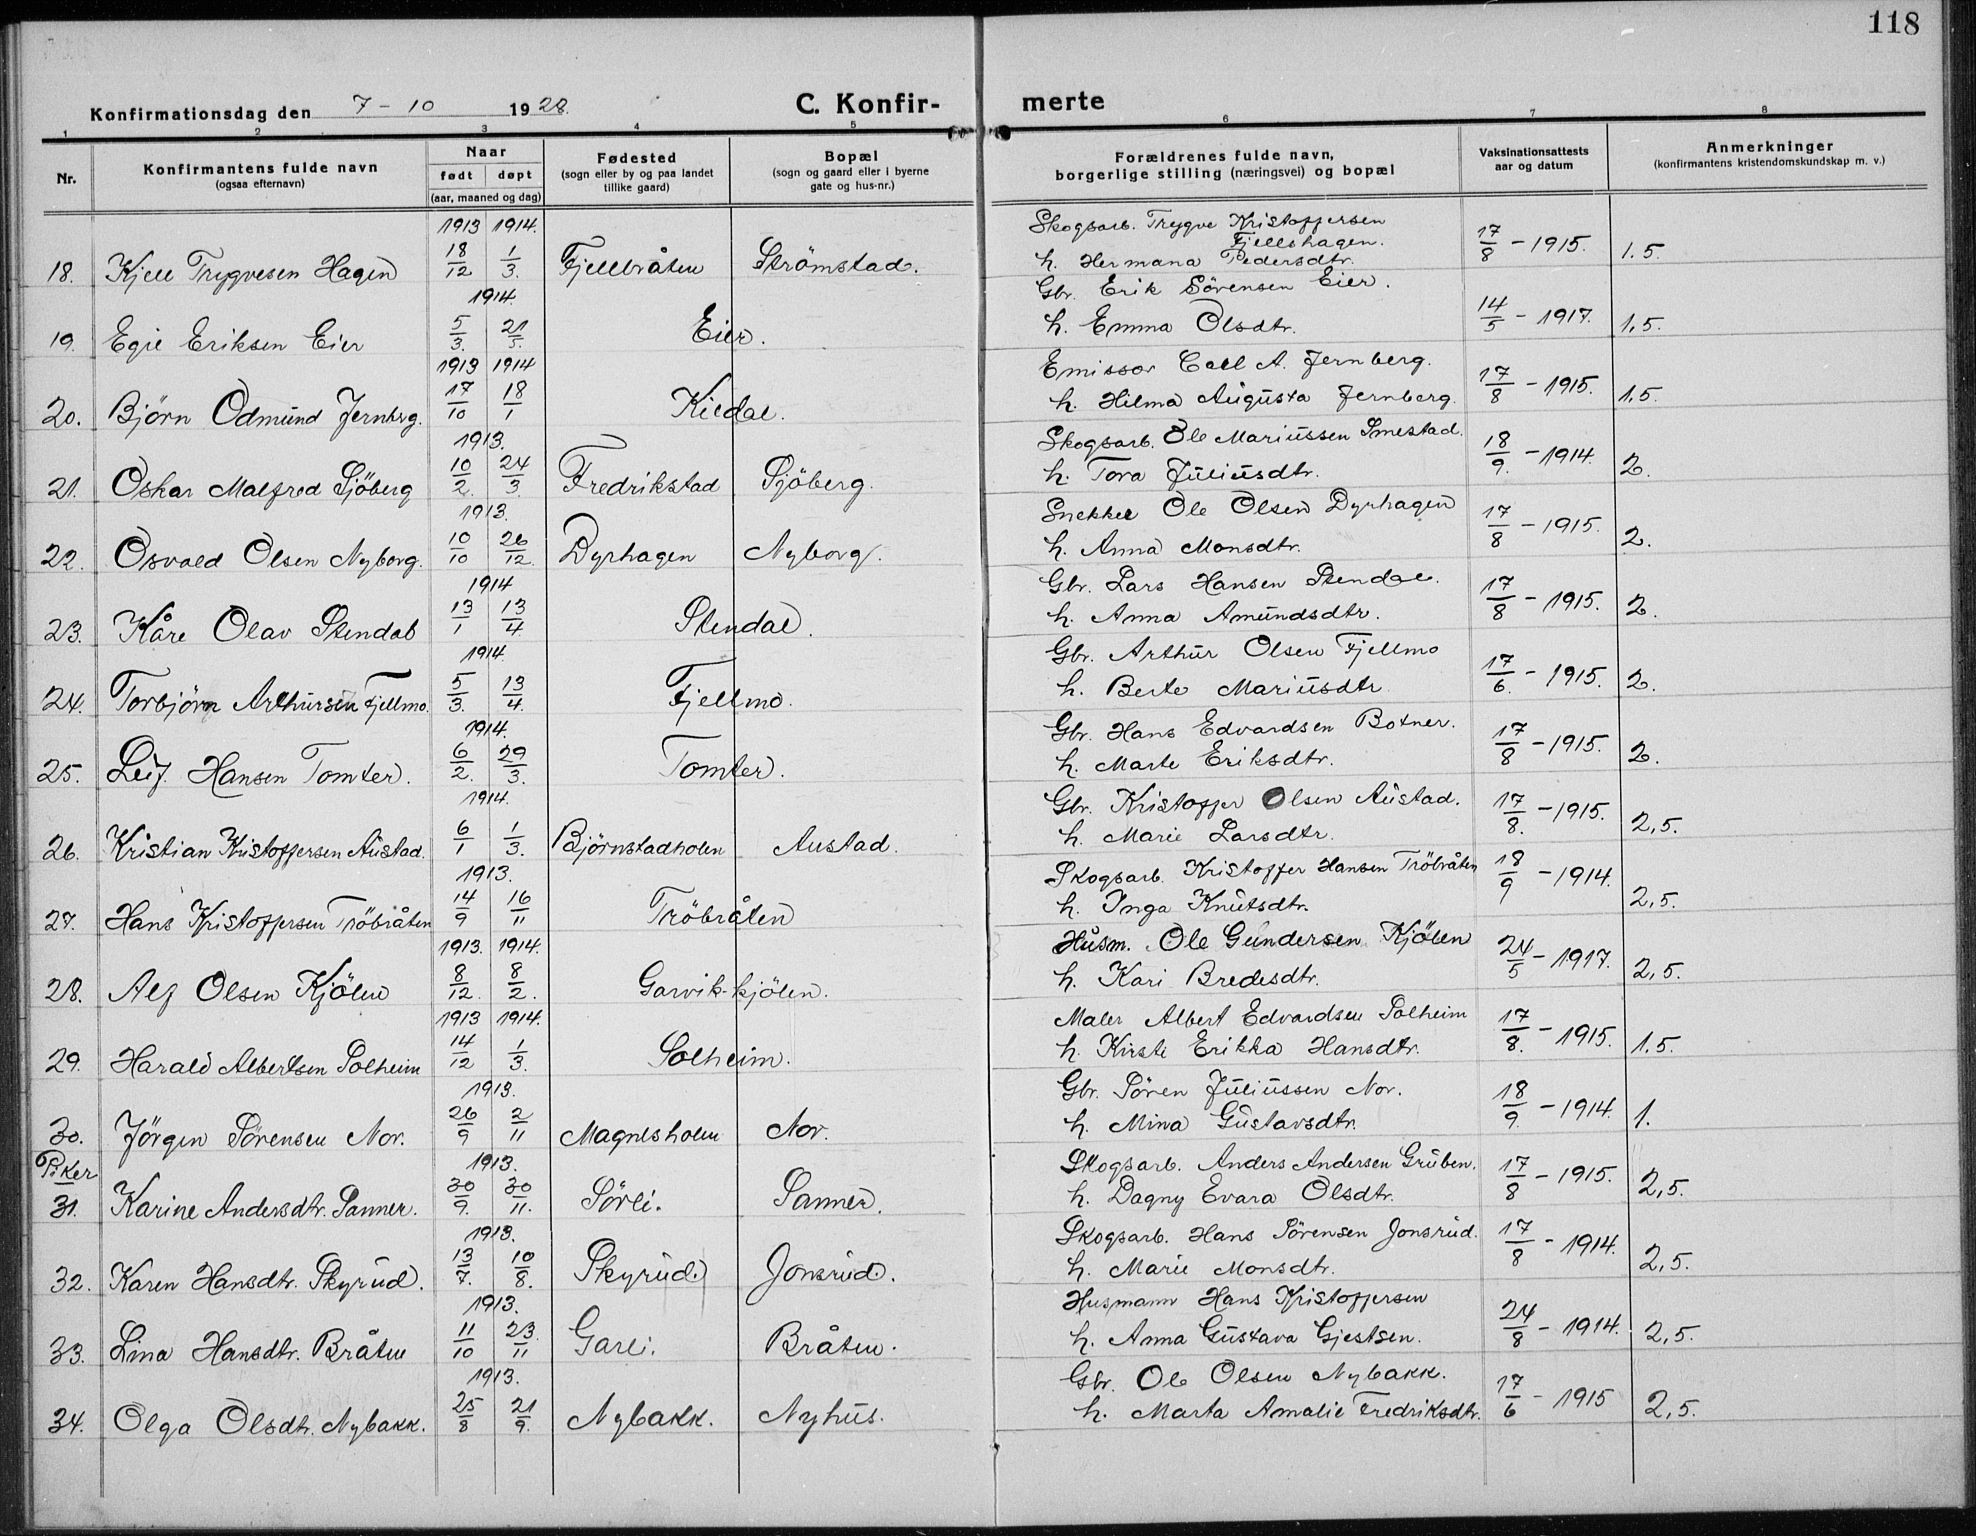 118
Konfirmationsdag den 7-10 1928.
C. Konfir-
merte
1 2 3 4 5 6 7 8
Nr.
Konfirmantens fulde navn
(ogsaa efternavn)
Naar
født døpt
(aar, maaned og dag)
Fødested
(sogn eller by og paa landet
tillike gaard)
Bopæl
(sogn og gaard eller i byerne
gate og hus-nr.)
Forældrenes fulde navn,
borgerlige stilling (næringsvei) og bopæl
Vaksinationsattests
aar og datum
Anmerkninger
(konfirmantens kristendomskundskap m. v.)
1913 1914.
18. Kjell Trygvesen Hagen 18/12 1/3. Fjellbråten Strømstad.
Skogsarb. Trygve Kristoffersen
Fjellshagen.
h. Hermana Pedersdtr. 17/8 - 1915. 1.5.
1914.
19. Egil Eriksen Eier 5/3. 21/5. Eier.
Gbr. Erik Sörensen Eier.
h. Emma Olsdtr. 14/5 - 1917. 1,5.
1913 1914
20. Björn Odmund Jernberg. 17/10 18/1 Kildal.
Emissær Carl A. Jernberg.
h. Hilma Augusta Jernberg. 17/8 - 1915. 1,5.
1913.
21. Oskar Malfred Sjöberg 10/2. 24/3. Fredrikstad Sjöberg.
Skogsarb. Ole Mariussen Smestad.
h. Tora Juliusdtr. 18/9. - 1914. 2.
1913.
22. Osvald Olsen Nyborg. 10/10 26/12. Dyrhagen Nyborg.
Snekker Ole Olsen Dyrhagen
h. Anna Monsdtr. 17/8 - 1915. 2.
1914
23. Kåre Olav Stendal 13/1 13/4 Stendal.
Gbr. Lars Hansen Stendal.
h. Anna Amundsdtr. 17/8 - 1915. 2.
1914.
24. Torbjörn Arthursen Fjellmo. 5/3. 13/4. Fjellmo.
Gbr. Arthur Olsen Fjellmo
h. Berte Mariusdtr 17/6. - 1915. 2.
1914.
25. Leif Hansen Tomter. 6/2. 29/3. Tomter.
Gbr. Hans Edvardsen Botner.
h. Marte Eriksdtr. 17/8 - 1915. 2.
1914.
26. Kristian Kristoffersen Austad. 6/1 1/3. Björnstadholen Austad.
Gbr. Kristoffer Olsen Austad.
h. Marie Larsdtr. 17/8. - 1915. 2,5.
1913.
27. Hans Kristoffersen Tröbråten 14/9 16/11 Tröbråten
Skogsarb. Kristoffer Hansen Tröbråten
h. Inga Knutsdtr. 18/9 - 1914. 2,5.
1913. 1914.
28. Alf Olsen Kjölen 8/12. 8/2. Garvik-kjölen.
Husm. Ole Gundersen Kjölen
h. Kari Bredesdtr. 24/5 - 1917. 2,5.
1913 1914.
29. Harald Albertsen Solheim 14/12 1/3. Solheim.
Maler Albert Edvardsen Solheim
h. Kirsti Erikka Hansdtr. 17/8. - 1915. 1.5.
1913.
30. Jörgen Sörensen Nor. 26/9 2/11 Magnesholen Nor.
Gbr. Sören Juliussen Nor.
h. Mina Gustavsdtr. 18/9. - 1914. 1.
Piker
1913.
31. Karine Andersdtr. Sanner. 30/9. 30/11. Sörli. Sanner.
Skogsarb. Anders Andersen Gruben.
h. Dagny Evara Olsdtr. 17/8 - 1915. 2,5.
1913.
32. Karen Hansdtr. Skyrud. 13/7. 10/8. Skyrud. Jonsrud.
Skogsarb. Hans Sörensen Jonsrud.
h. Marie Monsdtr. 17/8 - 1914. 2,5.
1913.
33. Lina Hansdtr. Bråten 11/10 23/11 Garli. Bråten.
Husmann Hans Kristoffersen
h. Anna Gustava Gjestsen. 24/8 - 1914. 2,5.
1913.
34. Olga Olsdtr. Nybakk. 25/8 21/9. Nybakk. Nyhus.
Gbr. Ole Olsen Nybakk.
h. Marta Amalie Fredriksdtr. 17/6 - 1915 2,5.